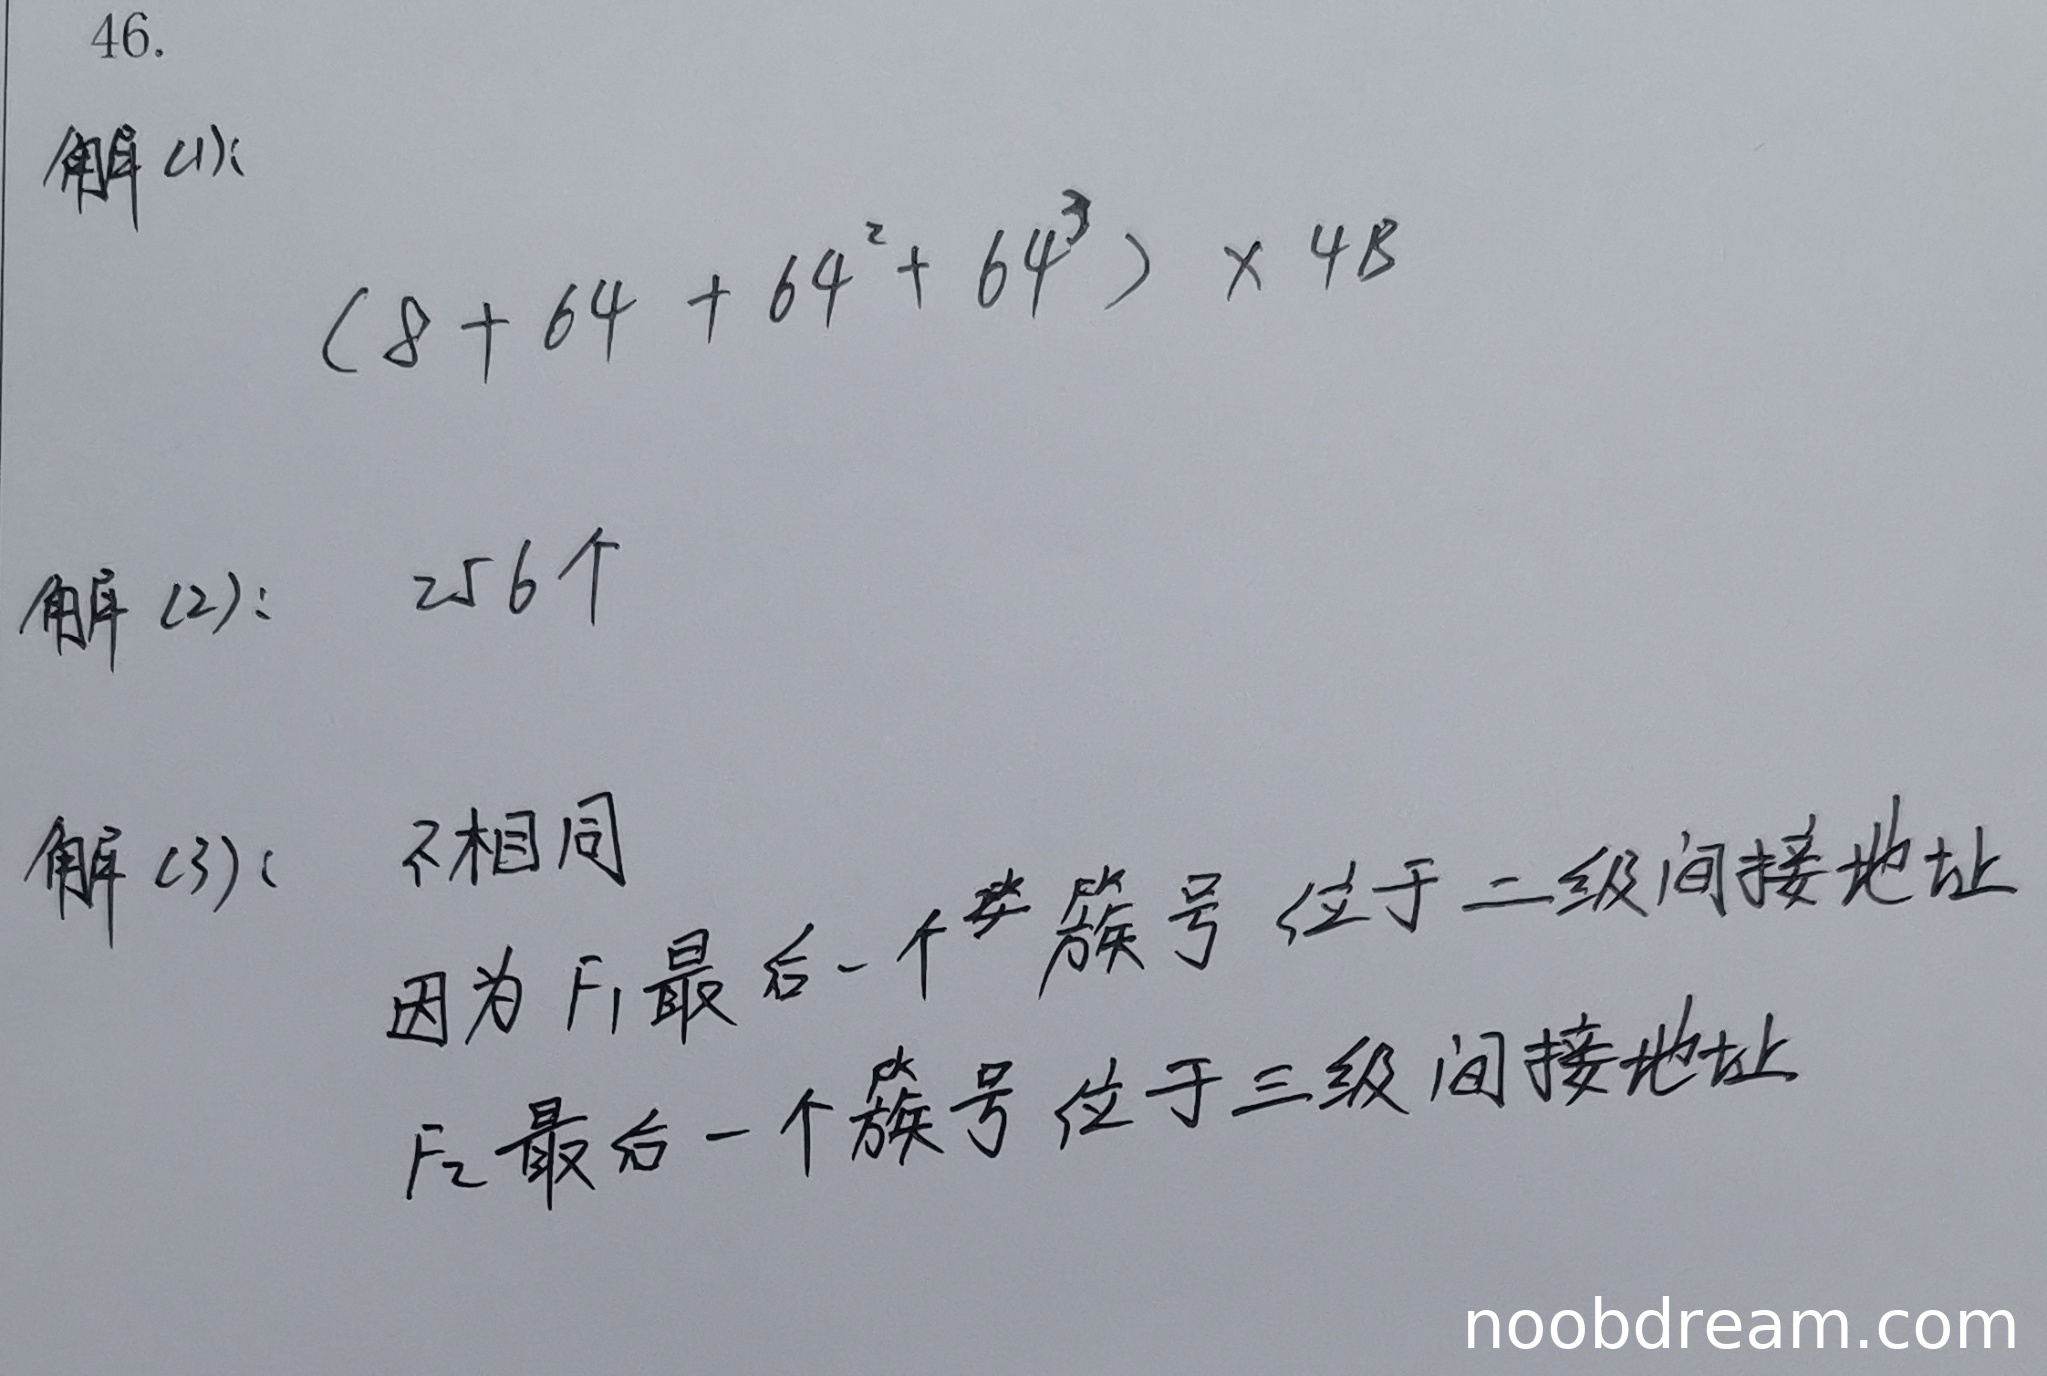 46.
解(1):
(8+64+64²+64³)×4B
解(2): 256个
解(3): 不相同
因为F1最后一个簇号位于二级间接地址
F2最后一个簇号位于三级间接地址
noobdream.com